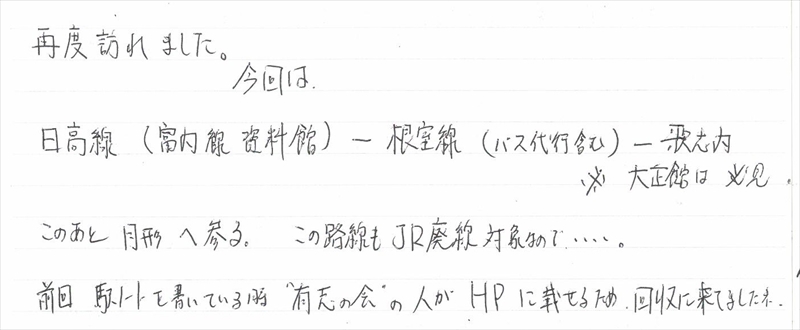 再度訪れました。
今回は、
日高線 (富内線 資料館) ー 根室線 (バス代行含む) ー 歌志内
※ 大正館は 必見.
このあと 月形 へ参る. この路線も JR廃線 対象なので‥‥‥。
前回 駅ノートを書いている時 "有志の会"の 人が HP に載せるため、回収に来てましたネ.